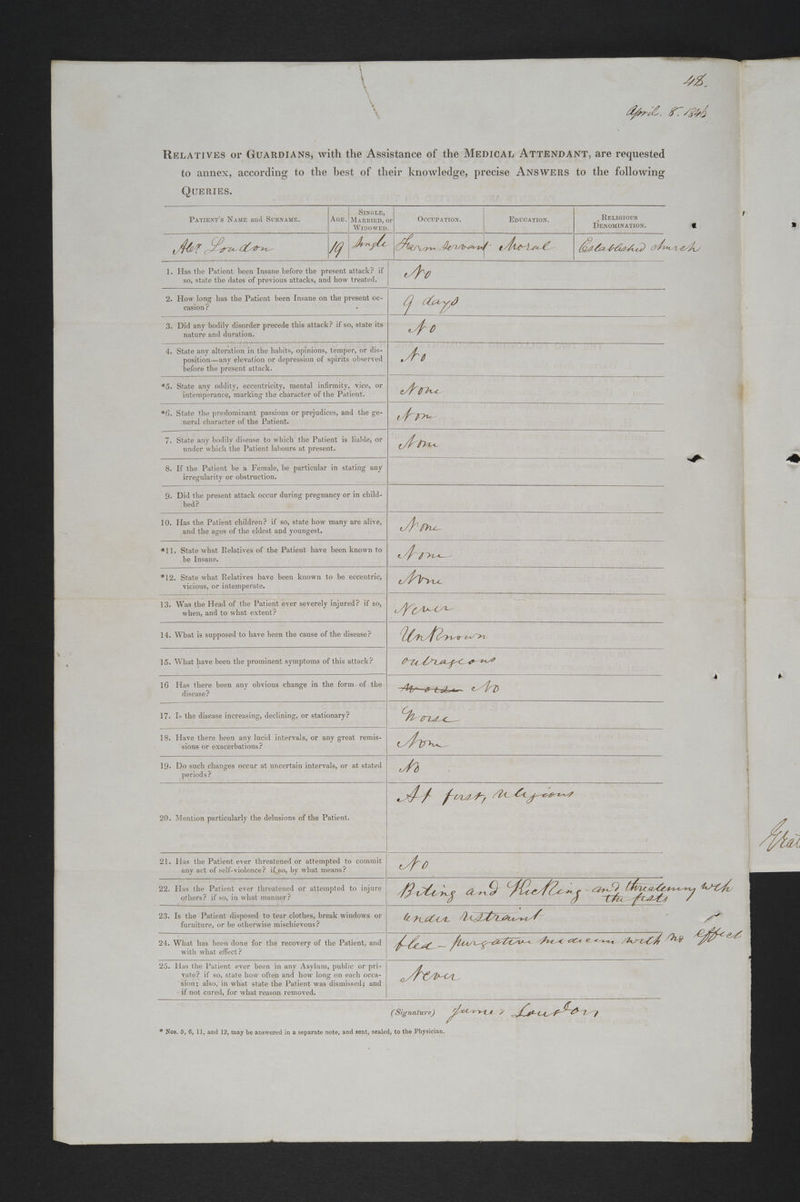 48.
April. 8. 1846
RELATIVES or GUARDIANS, with the Assistance of the MEDICAL ATTENDANT, are requested
to annex, according to the best of their knowledge, precise ANSWERS to the following
QUERIES.
PATIENT'S NAME and SURNAME. AGE. SINGLE, MARRIED, or WIDOWED. OCCUPATION. EDUCATION. RELIGIOUS DENOMINATION.
Alexr Loudon 19 Single Farm Servant Moral Established church
1. Has the Patient been Insane before the present attack? if
so, state the dates of previous attacks, and how treated.
No
2. How long has the Patient been Insane on the present oc-
casion?
9 days
3. Did any bodily disorder precede this attack? if so, state its
nature and duration.
No
4. State any alteration in the habits, opinions, temper, or dis-
position—any elevation or depression of spirits observed
before the present attack.
No
*5. State any oddity, eccentricity, mental infirmity, vice, or
intemperance, marking the character of the Patient.
None
*6. State the predominant passions or prejudices, and the ge-
neral character of the Patient.
Non
7. State any bodily disease to which the Patient is liable, or
under which the Patient labours at present.
None
8. If the Patient be a Female, be particular in stating any
irregularity or obstruction.
9. Did the present attack occur during pregnancy or in child-
bed?
10. Has the Patient children? if so, state how many are alive,
and the ages of the eldest and youngest.
None
*11. State what Relatives of the Patient have been known to
be Insane.
None
*12. State what Relatives have been known to be eccentric,
vicious, or intemperate.
None
13. Was the Head of the Patient ever severely injured? if so,
when, and to what extent?
Never
14. What is supposed to have been the cause of the disease?
Unknown
15. What have been the prominent symptoms of this attack?
outrageous
16 Has there been any obvious change in the form of the
disease?
Worse No
17. Is the disease increasing, declining, or stationary?
Worse
18. Have there been any lucid intervals, or any great remis-
sions or exacerbations?
None
19. Do such changes occur at uncertain intervals, or at stated
periods?
No
20. Mention particularly the delusions of the Patient.
At first, religious
21. Has the Patient ever threatened or attempted to commit
any act of self-violence? if so, by what means?
No
22. Has the Patient ever threatened or attempted to injure
others? if so, in what manner?
Biting and Kicking and threatening with
the fists
23. Is the Patient disposed to tear clothes, break windows or
furniture, or be otherwise mischievous?
under restraint
24. What has been done for the recovery of the Patient, and
with what effect?
bled - purgative medicine with no effect
25. Has the Patient ever been in any Asylum, public or pri-
vate? if so, state how often and how long on each occa-
sion; also, in what state the Patient was dismissed; and
if not cured, for what reason removed.
Never
(Signature) James Loudon
* Nos. 5, 6, 11, and 12, may be answered in a separate note, and sent, sealed, to the Physician.